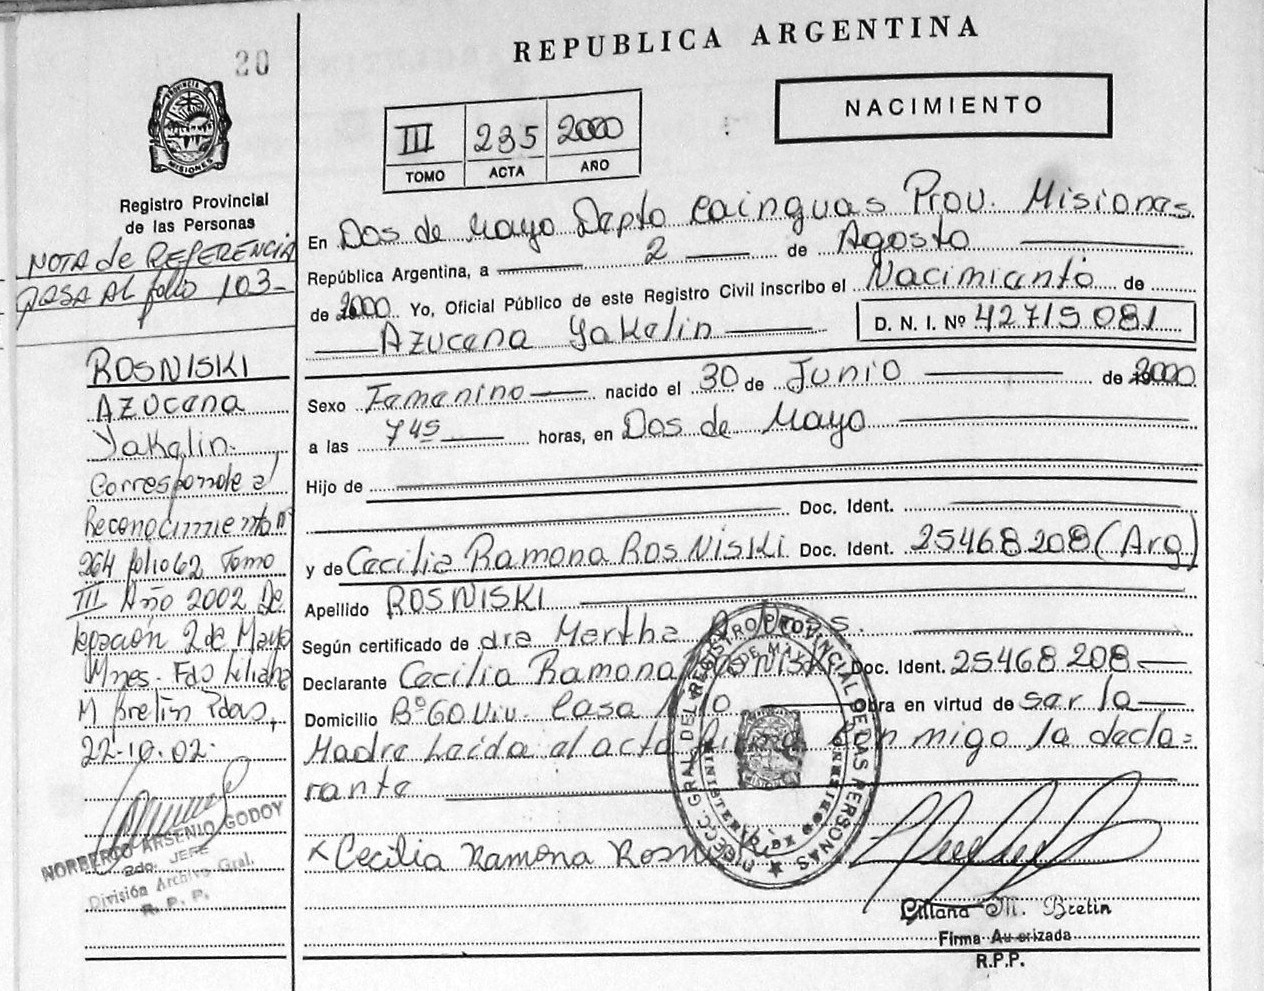 20
REPUBLICA ARGENTINA
NACIMIENTO
III 235 2000
TOMO ACTA AÑO
PROVINCIA DE
MISIONES
Registro Provincial
de las Personas
NOTA de REFERENCIA
PASA AL folio 103-
ROSNISKI
AZUCENA
Yakelin.
Corresponde al
Reconocimiento nº
264 folio 62 Tomo
III Año 2002 De
legación 2 de Mayo
Mnes. Fdo Liliana
M Bretin Pdas,
22-10-02.
NORBERTO ARSENIO GODOY
2do. JEFE
División Archivo Gral.
R. P. P.
En Dos de Mayo Depto Cainguas Prov. Misiones
República Argentina, a 2 de Agosto
de 2000 Yo, Oficial Público de este Registro Civil inscribo el Nacimiento de
Azucena Yakelin D. N. I. Nº 42715081
Sexo Femenino nacido el 30 de Junio de 2000
a las 7 45 horas, en Dos de Mayo
Hijo de
Doc. Ident.
y de Cecilia Ramona Rosniski Doc. Ident. 25468208 (Arg)
Apellido ROSNISKI
Según certificado de dra Martha
Declarante Cecilia Ramona Rosniski Doc. Ident. 25468208
Domicilio Bº 60 Viv. Casa Obra en virtud de ser la
Madre Leida el acta firma conmigo la decla=
rante
x Cecilia Ramona Rosn
DIRECC. GRAL. DEL REGISTRO PROVINCIAL DE LAS PERSONAS
MINISTERIO DE GOBIERNO
DE MAYO
Liliana M. Bretin
Firma Autorizada
R.P.P.